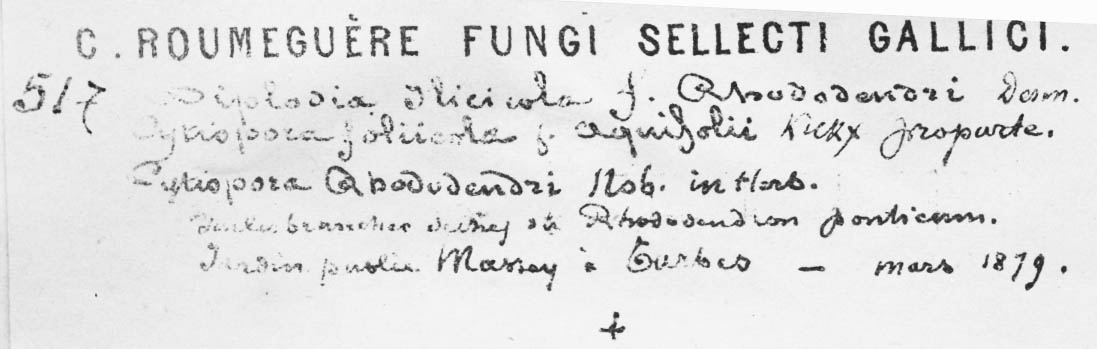 C. ROUMEGUÈRE FUNGI SELLECTI GALLICI.
517 Diplodia Ilicicola f. Rhododendri Desm.
Cytispora foliicola f. aquifolii Kickx proparte.
Cytispora Rhododendri Nob. in Herb.
branches du Rhododendron ponticum.
Jardin public Massey à Tarbes — mars 1879.
+